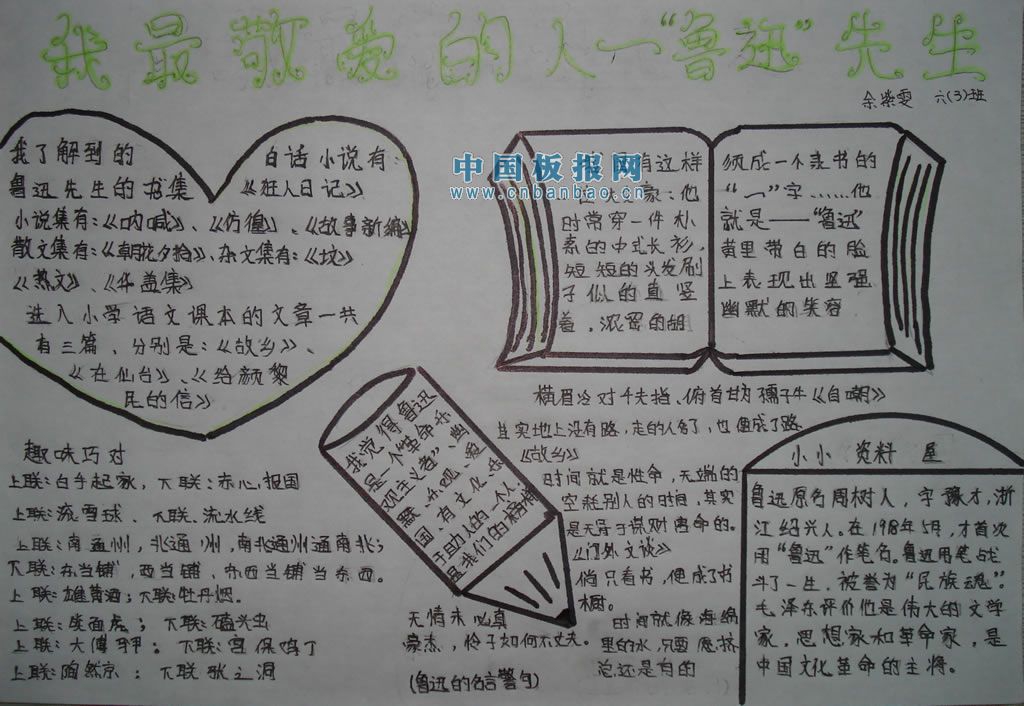 我最敬爱的人一“鲁迅”先生
余紫雯 六(3)班
我了解到的 白话小说有:
鲁迅先生的书集 《狂人日记》
小说集有:《呐喊》、《仿徨》、《故事新编》
散文集有:《朝花夕拾》、杂文集有:《坟》
《热文》、《华盖集》
选入小学语文课本的文章一共
有三篇、分别是:《故乡》、
《在仙台》、《给颜黎
民的信》
中国板报网
www.cnbanbao.cn
有这样
家:他
时常穿一件朴
素的中式长衫,
短短的头发刷
子似的直竖
着,浓密的胡
须成一个隶书的
“一”字……他
就是——“鲁迅”
黄里带白的脸
上表现出坚强
幽默的笑容
横眉冷对千夫指,俯首甘为孺子牛《自嘲》
其实地上没有路,走的人多了,也便成了路
《故乡》
时间就是性命,无端的
空耗别人的时间,其实
是无异于谋财害命的。
《门外文谈》
倘只看书,便成了书
橱。
时间就像海绵
里的水,只要愿挤
总还是有的
无情未必真
豪杰,怜子如何不丈夫。
(鲁迅的名言警句)
我觉得鲁迅
是一个“革命乐
观主义者”、幽
默、乐观、爱
国、有文化、乐
于助人的一个人,
是我们的榜样
趣味巧对
上联:白手起家,下联:赤心报国
上联:滚雪球、下联:流水线
上联:南通州,北通州,南北通州通南北;
下联:东当铺,西当铺,东西当铺当东西。
上联:雄黄酒;下联:牡丹烟。
上联:矮面虎;下联:磕头虫
上联:大傅甲。下联:宫保鸡丁
上联:陶然亭;下联 张之洞
小小 资料 屋
鲁迅原名周树人,字豫才,浙
江绍兴人。在1918年5月,才首次
用“鲁迅”作笔名。鲁迅用笔战
斗了一生,被誉为“民族魂”。
毛泽东评价他是伟大的文学
家,思想家和革命家,是
中国文化革命的主将。